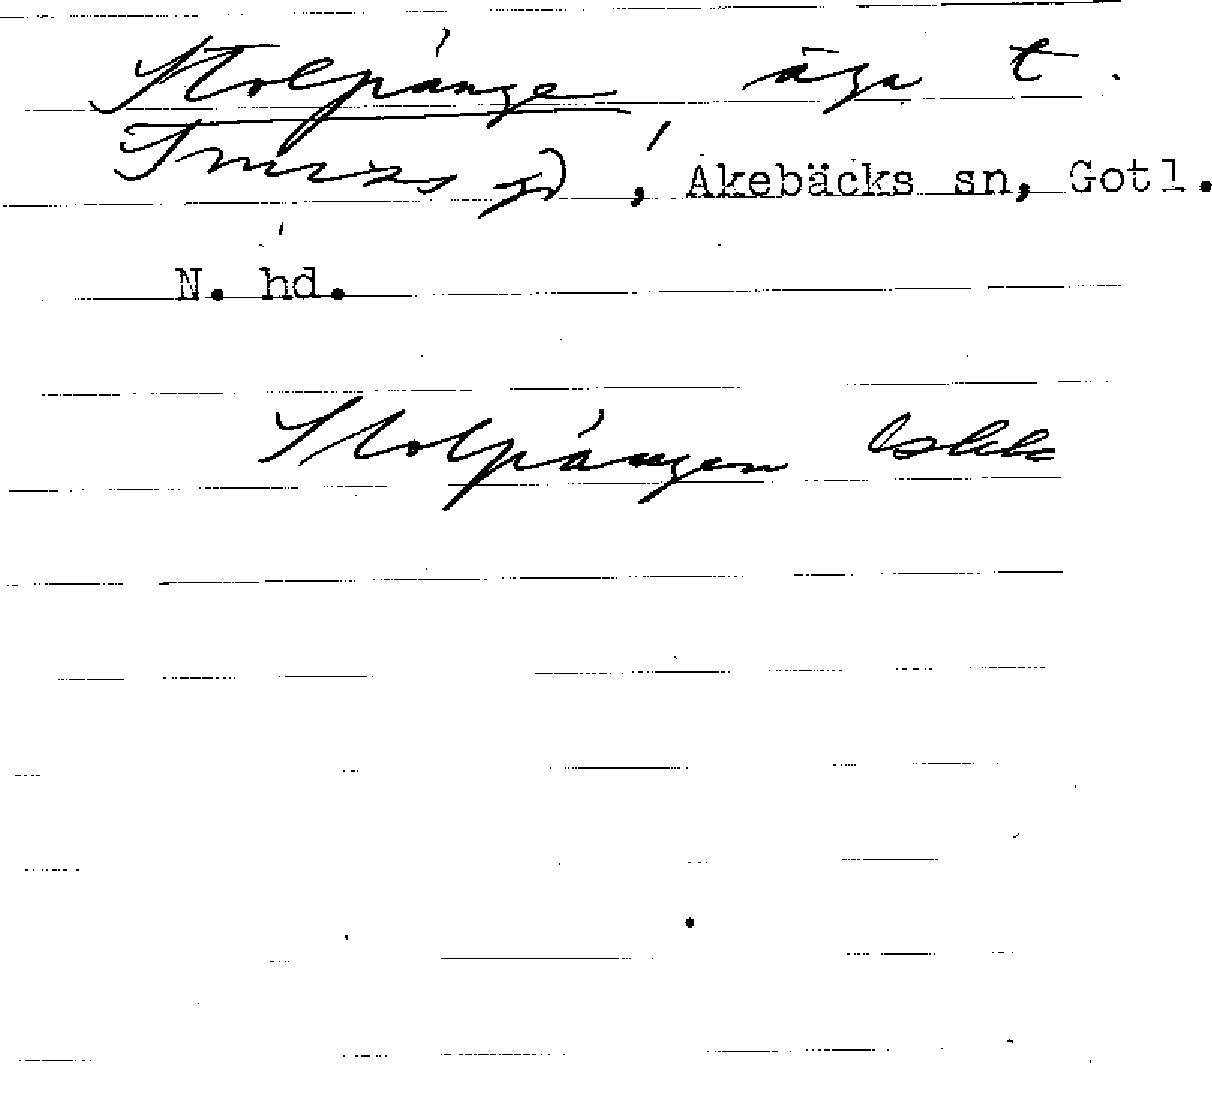 Stolpänge äga t.
Smiss gd, Akebäcks sn, Gotl.
N. hd.
Stolpängen